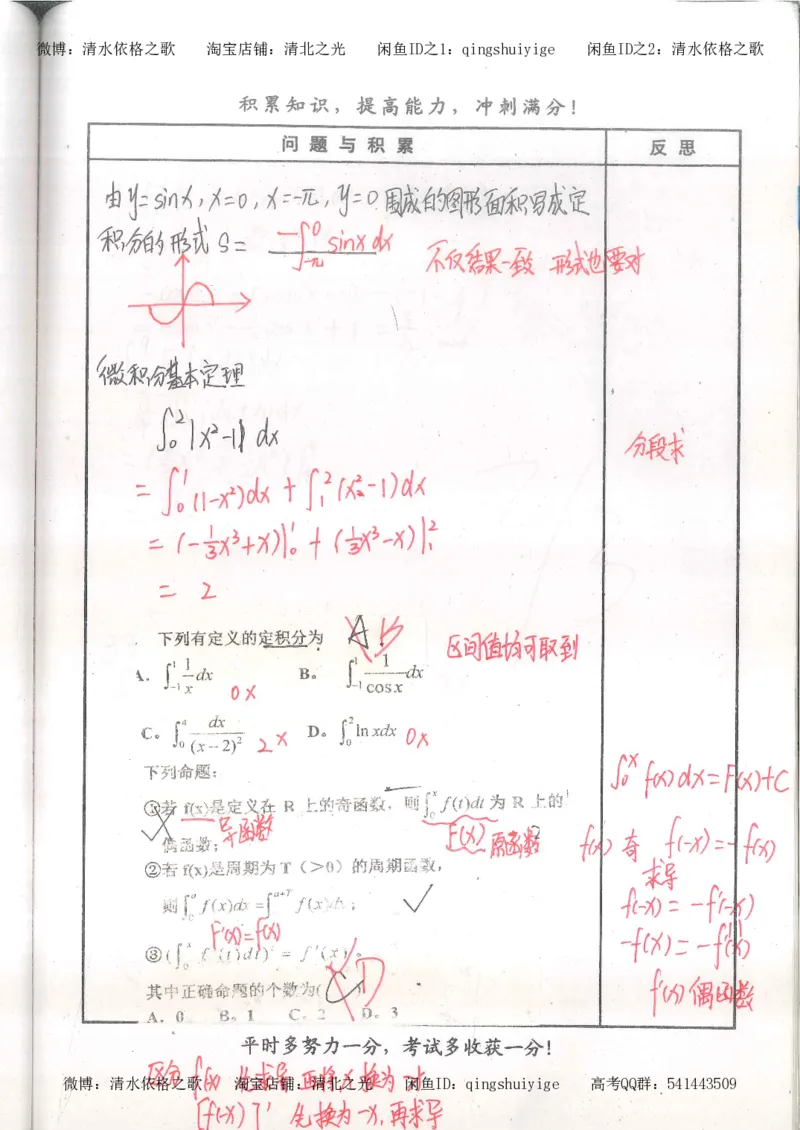 微博：清水依格之歌 淘宝店铺：清北之光 闲鱼ID之1：qingshuiyige 闲鱼ID之2：清水依格之歌
积累知识，提高能力，冲刺满分！
问题与积累 反思
由y=sinx，x=0，x=-π，y=0围成的图形面积写成定
积分的形式 S= -∫_{-π}^{0} sinx dx
不仅结果一致 形式也要对
微积分基本定理
∫_0^2 |x²-1| dx
分段求
= ∫_0^1 (1-x²)dx + ∫_1^2 (x²-1)dx
= (-1/3x³+x)|_0^1 + (1/3x³-x)|_1^2
= 2
下列有定义的定积分为 A. B
区间值均可取到
A. ∫_{-1}^1 1/x dx 0× B。 ∫_{-1}^1 1/cosx dx
C。 ∫_0^a dx/(x-2)² 2× D。 ∫_0^2 lnxdx 0×
下列命题：
∫_0^x f(x)dx=F(x)+C
①若 f(x)是定义在 R 上的奇函数，则∫_0^x f(t)dt 为 R 上的
导函数 F(x) 原函数
偶函数；
f(x) 奇 f(-x)=-f(x)
求导
②若 f(x)是周期为 T（>0）的周期函数，
则∫_0^a f(x)dx=∫_0^{a+T} f(x)dx；
f(-x)=-f'(-x)
F'(x)=f(x)
③(∫_0^x f(t)dt)' = f'(x)。
-f(x)=-f'(x)
f'(x)偶函数
其中正确命题的个数为( C ) D
A. 0 B。1 C. 2 D。3
平时多努力一分，考试多收获一分！
区分 f'(-x) 先求导 再将x换为-x
微博：清水依格之歌 淘宝店铺：清北之光 闲鱼ID：qingshuiyige 高考QQ群：541443509
[f(-x)]' 先换为-x,再求导